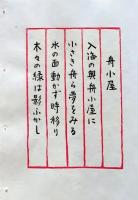 舟小屋
入海の奥舟小屋に
小さき舟ら夢をみる
水の面動かず時移り
木々の緑は影ふかし